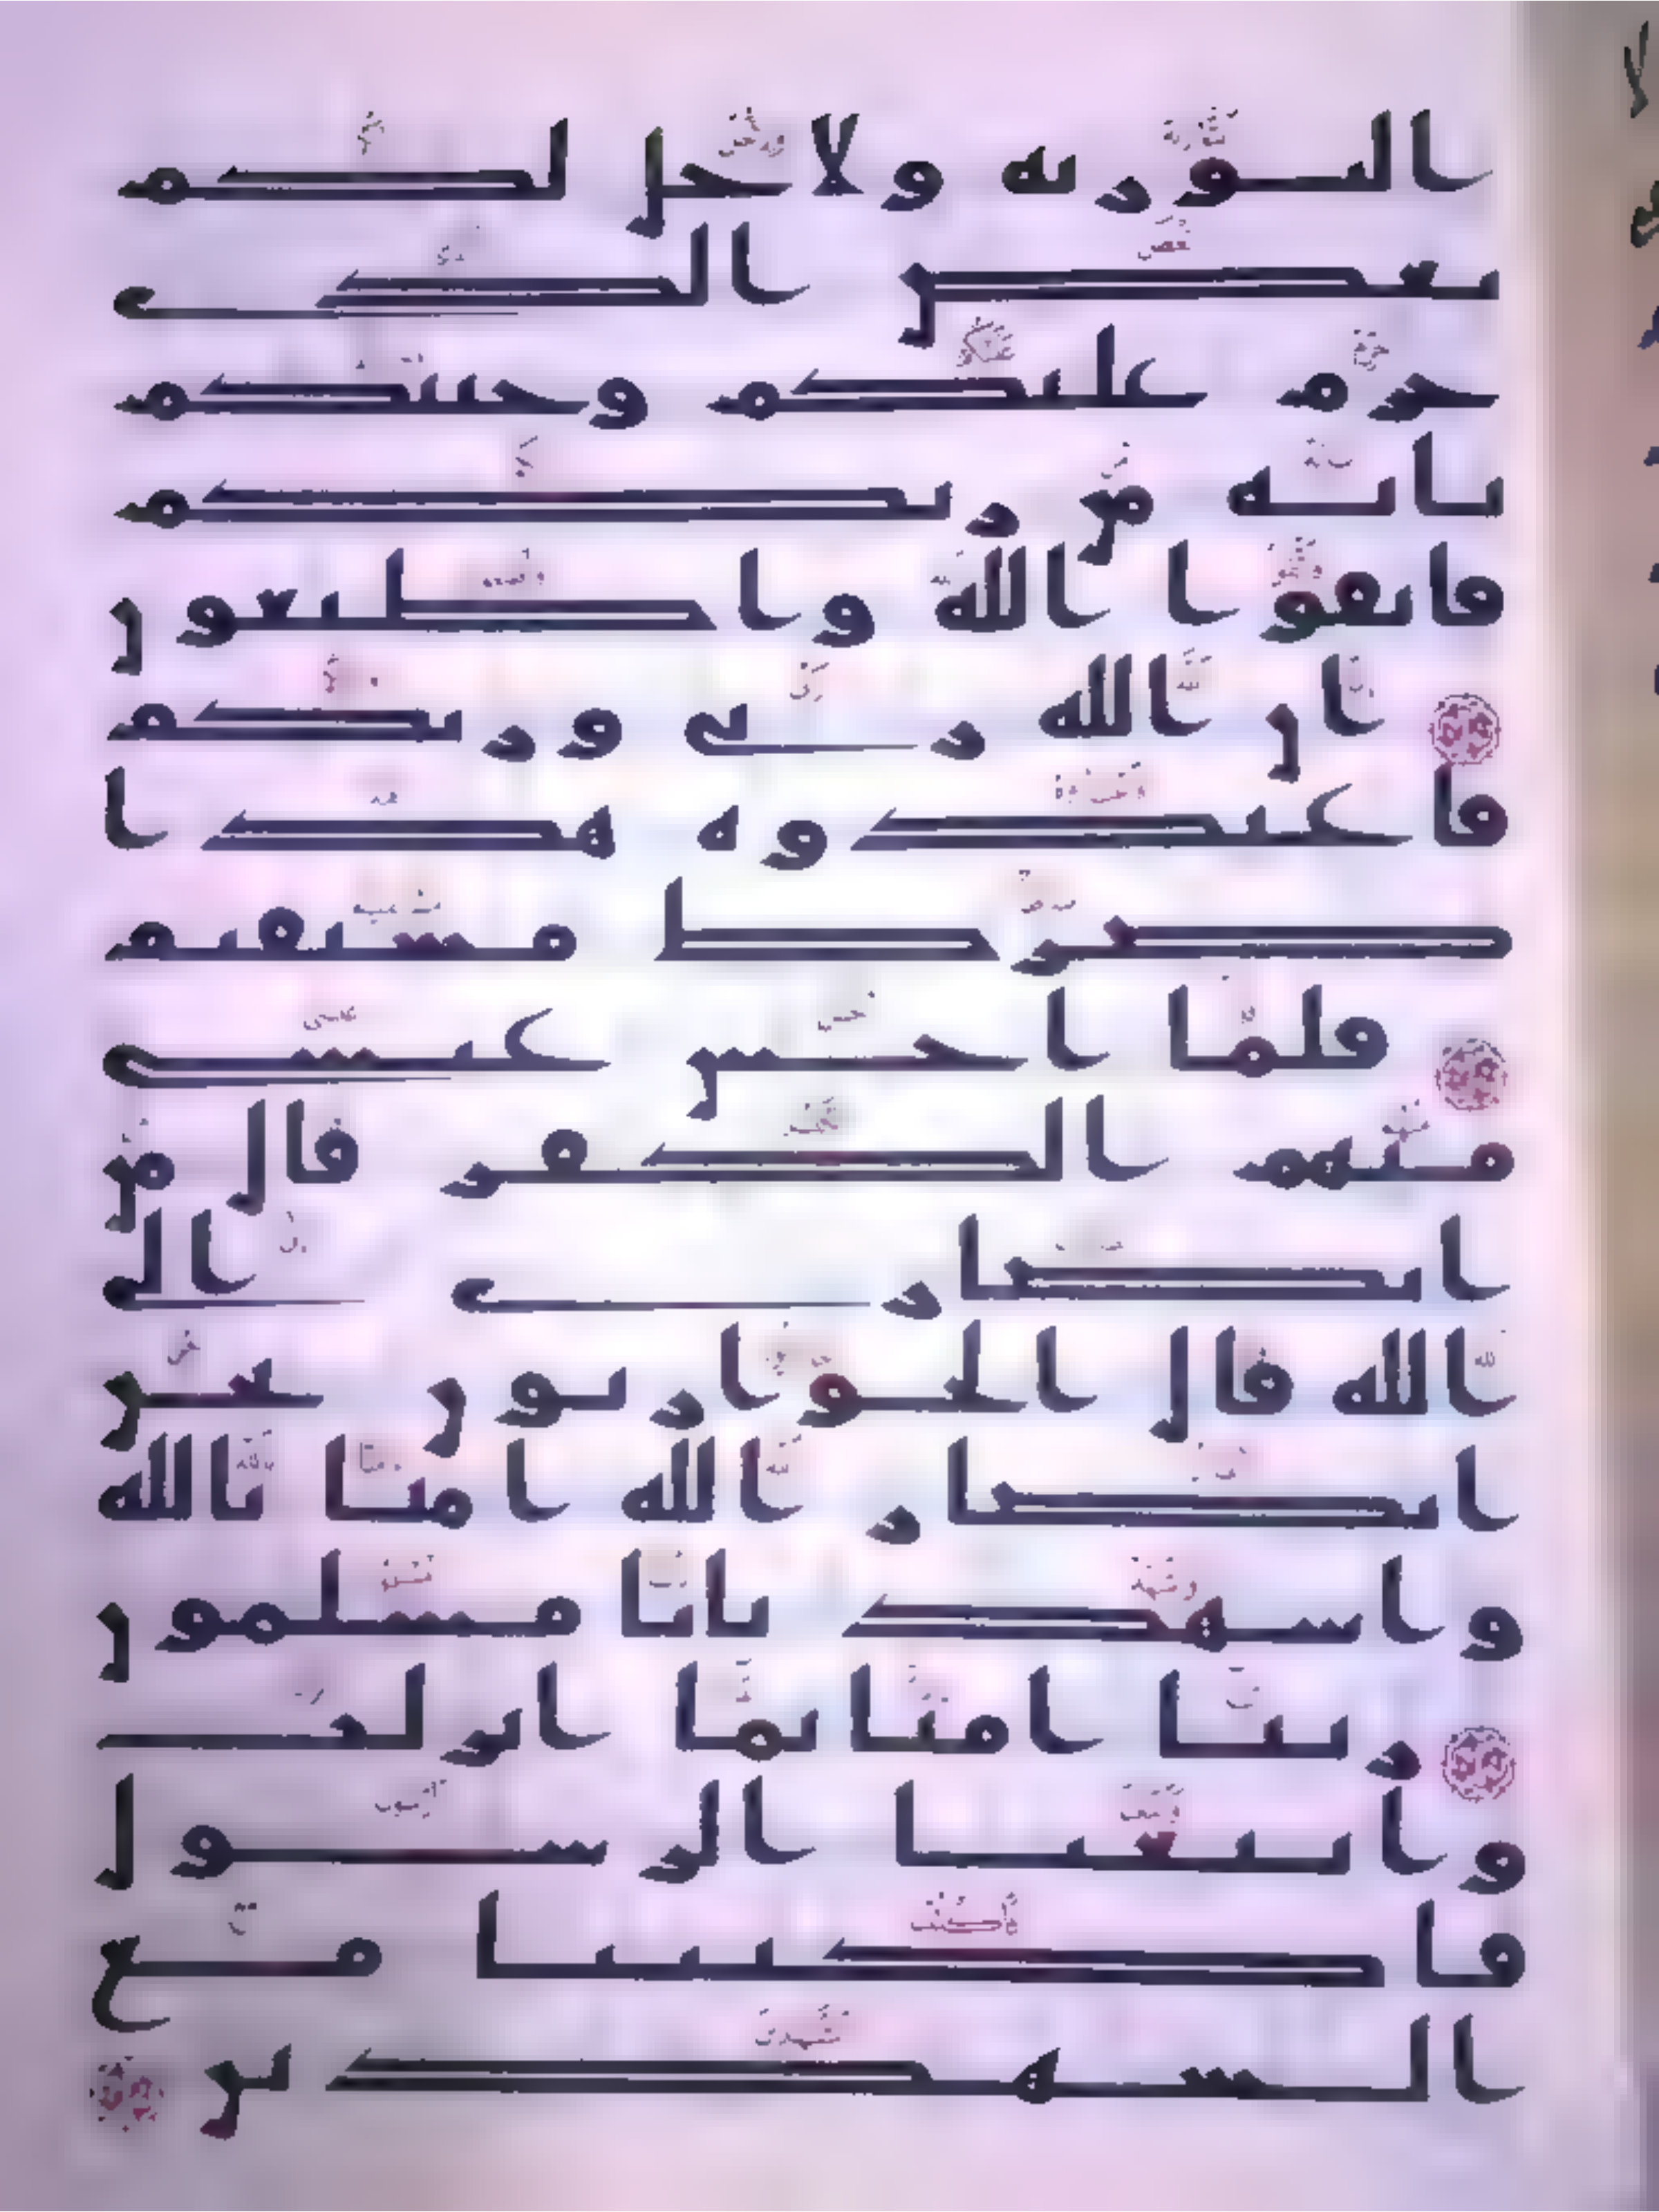 التورية ولاحل لكم
بعض الذي
حرم عليكم وجئتكم
باية من ربكم
فاتقوا الله واطيعون
ان الله ربي وربكم
فاعبدوه هذا
صرط مستقيم
فلمّا احس عيسى
منهم الكفر قال من
انصاري الى
الله قال الحوّاريون نحن
انصار الله امنا بالله
واشهد بانا مسلمون
ربنا امنا بما انزلت
واتبعنا الرسول
فاكتبنا مع
الشهدين